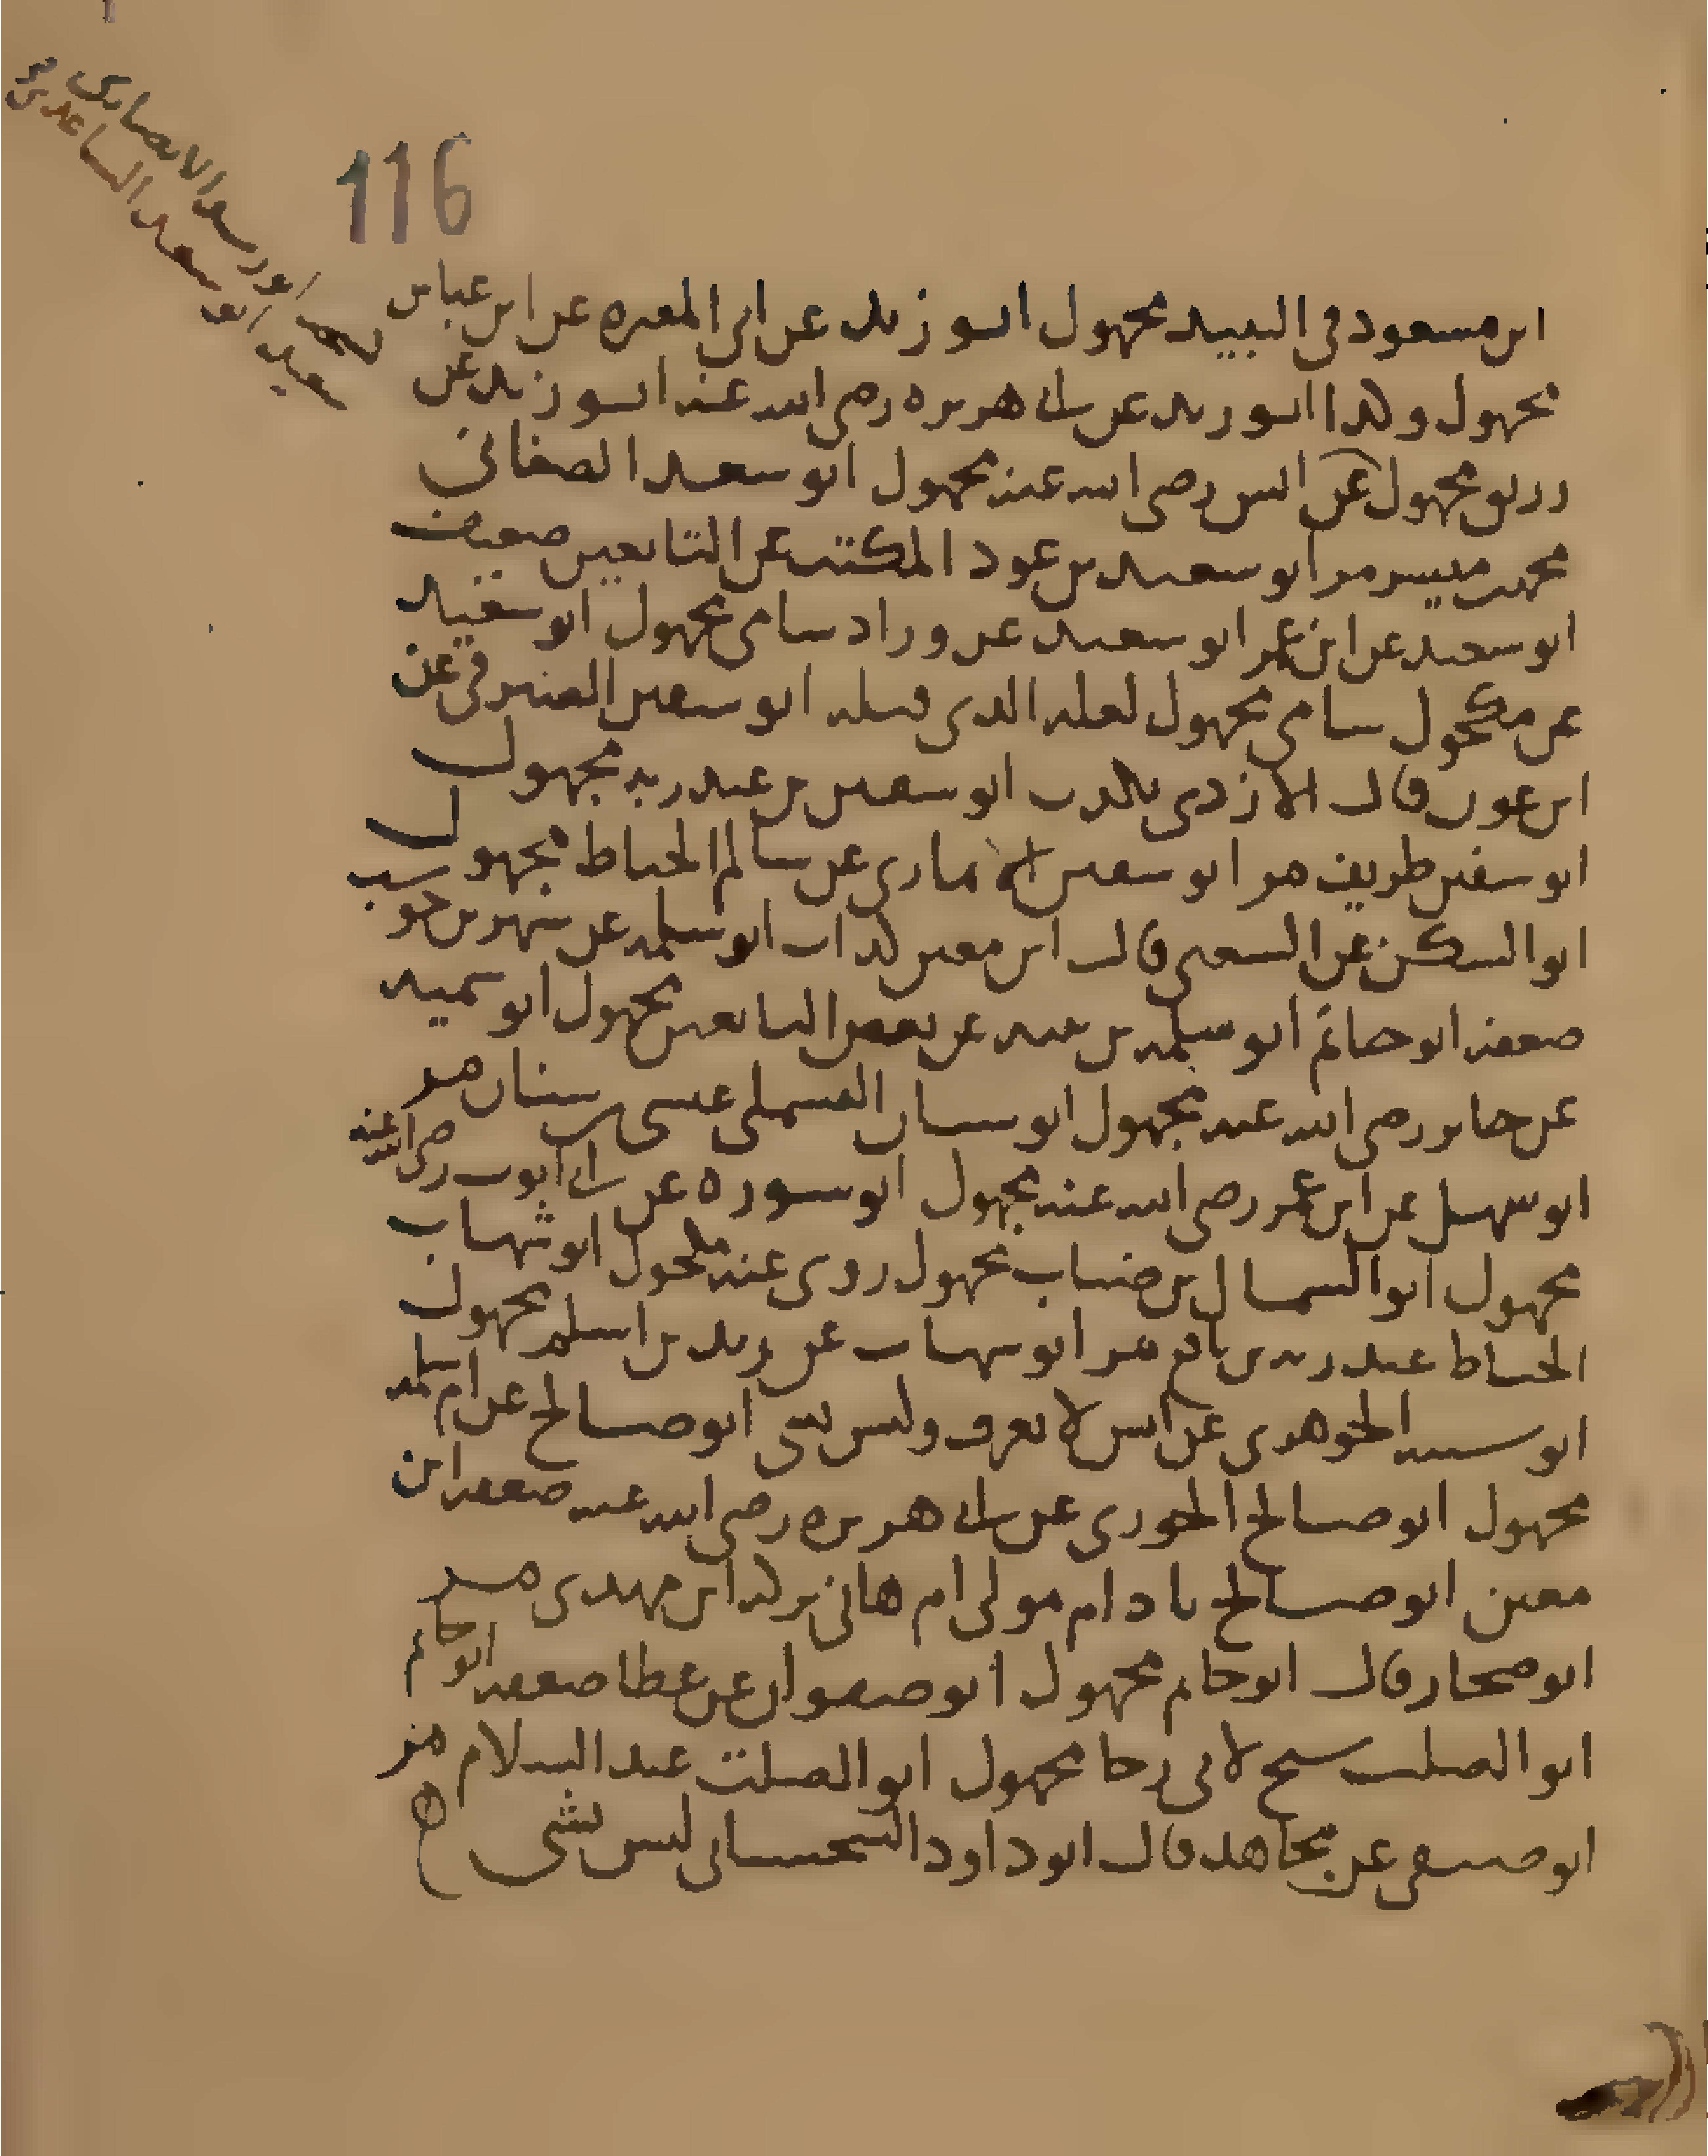 116
ابن مسعود في النبيذ مجهول ابو زيد عن ابي المغيره عن ابن عباس
مجهول وكذا ابو زيد عن ابي هريره رضي الله عنه ابو زيد عن
رزيق مجهول عن انس رضي الله عنه مجهول ابو سعد الصغاني
محمد بن ميسر مر ابو سعيد بن عوذ المكتب عن التابعين ضعيف
ابو سعيد عن ابن عمر ابو سعيد عن وراد شامي مجهول ابو سعيد
عن مكحول شامي مجهول لعله الذي قبله ابو سفين الصيرفي عن
ابن عون قال الازدي يكذب ابو سفين بن عبد ربه مجهول
ابو سفين طريف مر ابو سفين الانماري عن سالم الخياط مجهول
ابو السكن عن الشعبي قال ابن معين كذاب ابو سلمه عن شهر بن حوشب
ضعفه ابو حاتم ابو سلمه بن عن بعض التابعين مجهول ابو سميه
عن جابر رضي الله عنه مجهول ابو سنان القسملي عيسى بن سنان مر
ابو سهل عن ابن عمر رضي الله عنه مجهول ابو سوره عن ابي ايوب رضي الله عنه
مجهول ابو السمال بن ضباب مجهول روى عنه مكحول ابو شهاب
الحناط عبد ربه بن نافع مر ابو شهاب عن زيد بن اسلم مجهول
ابو شيبه الجوهري عن انس لا يعرف وليس بشي ابو صالح عن ام سلمه
مجهول ابو صالح الخوزي عن ابي هريره رضي الله عنه ضعفه ابن
معين ابو صالح باذام مولى ام هاني تركه ابن مهدي مر
ابو صحار قال ابو حاتم مجهول ابو صفوان عن عطا ضعفه ابو حاتم
ابو الصلت شيخ لابي رجا مجهول ابو الصلت عبد السلام مر
ابو صيفي عن مجاهد قال ابو داود السجستاني ليس بشي